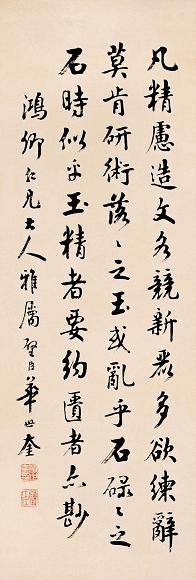 凡精慮造文各競新麗多欲練辭
莫肯研術落落之玉或亂乎石碌碌之
石時似乎玉精者要約匱者亦尠
鴻卿仁兄大人雅屬 聖臣華世奎